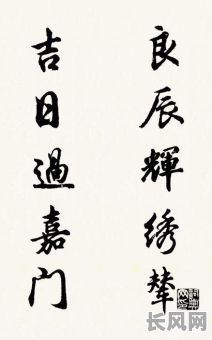 良辰輝绣辇
吉日過嘉门
长风网